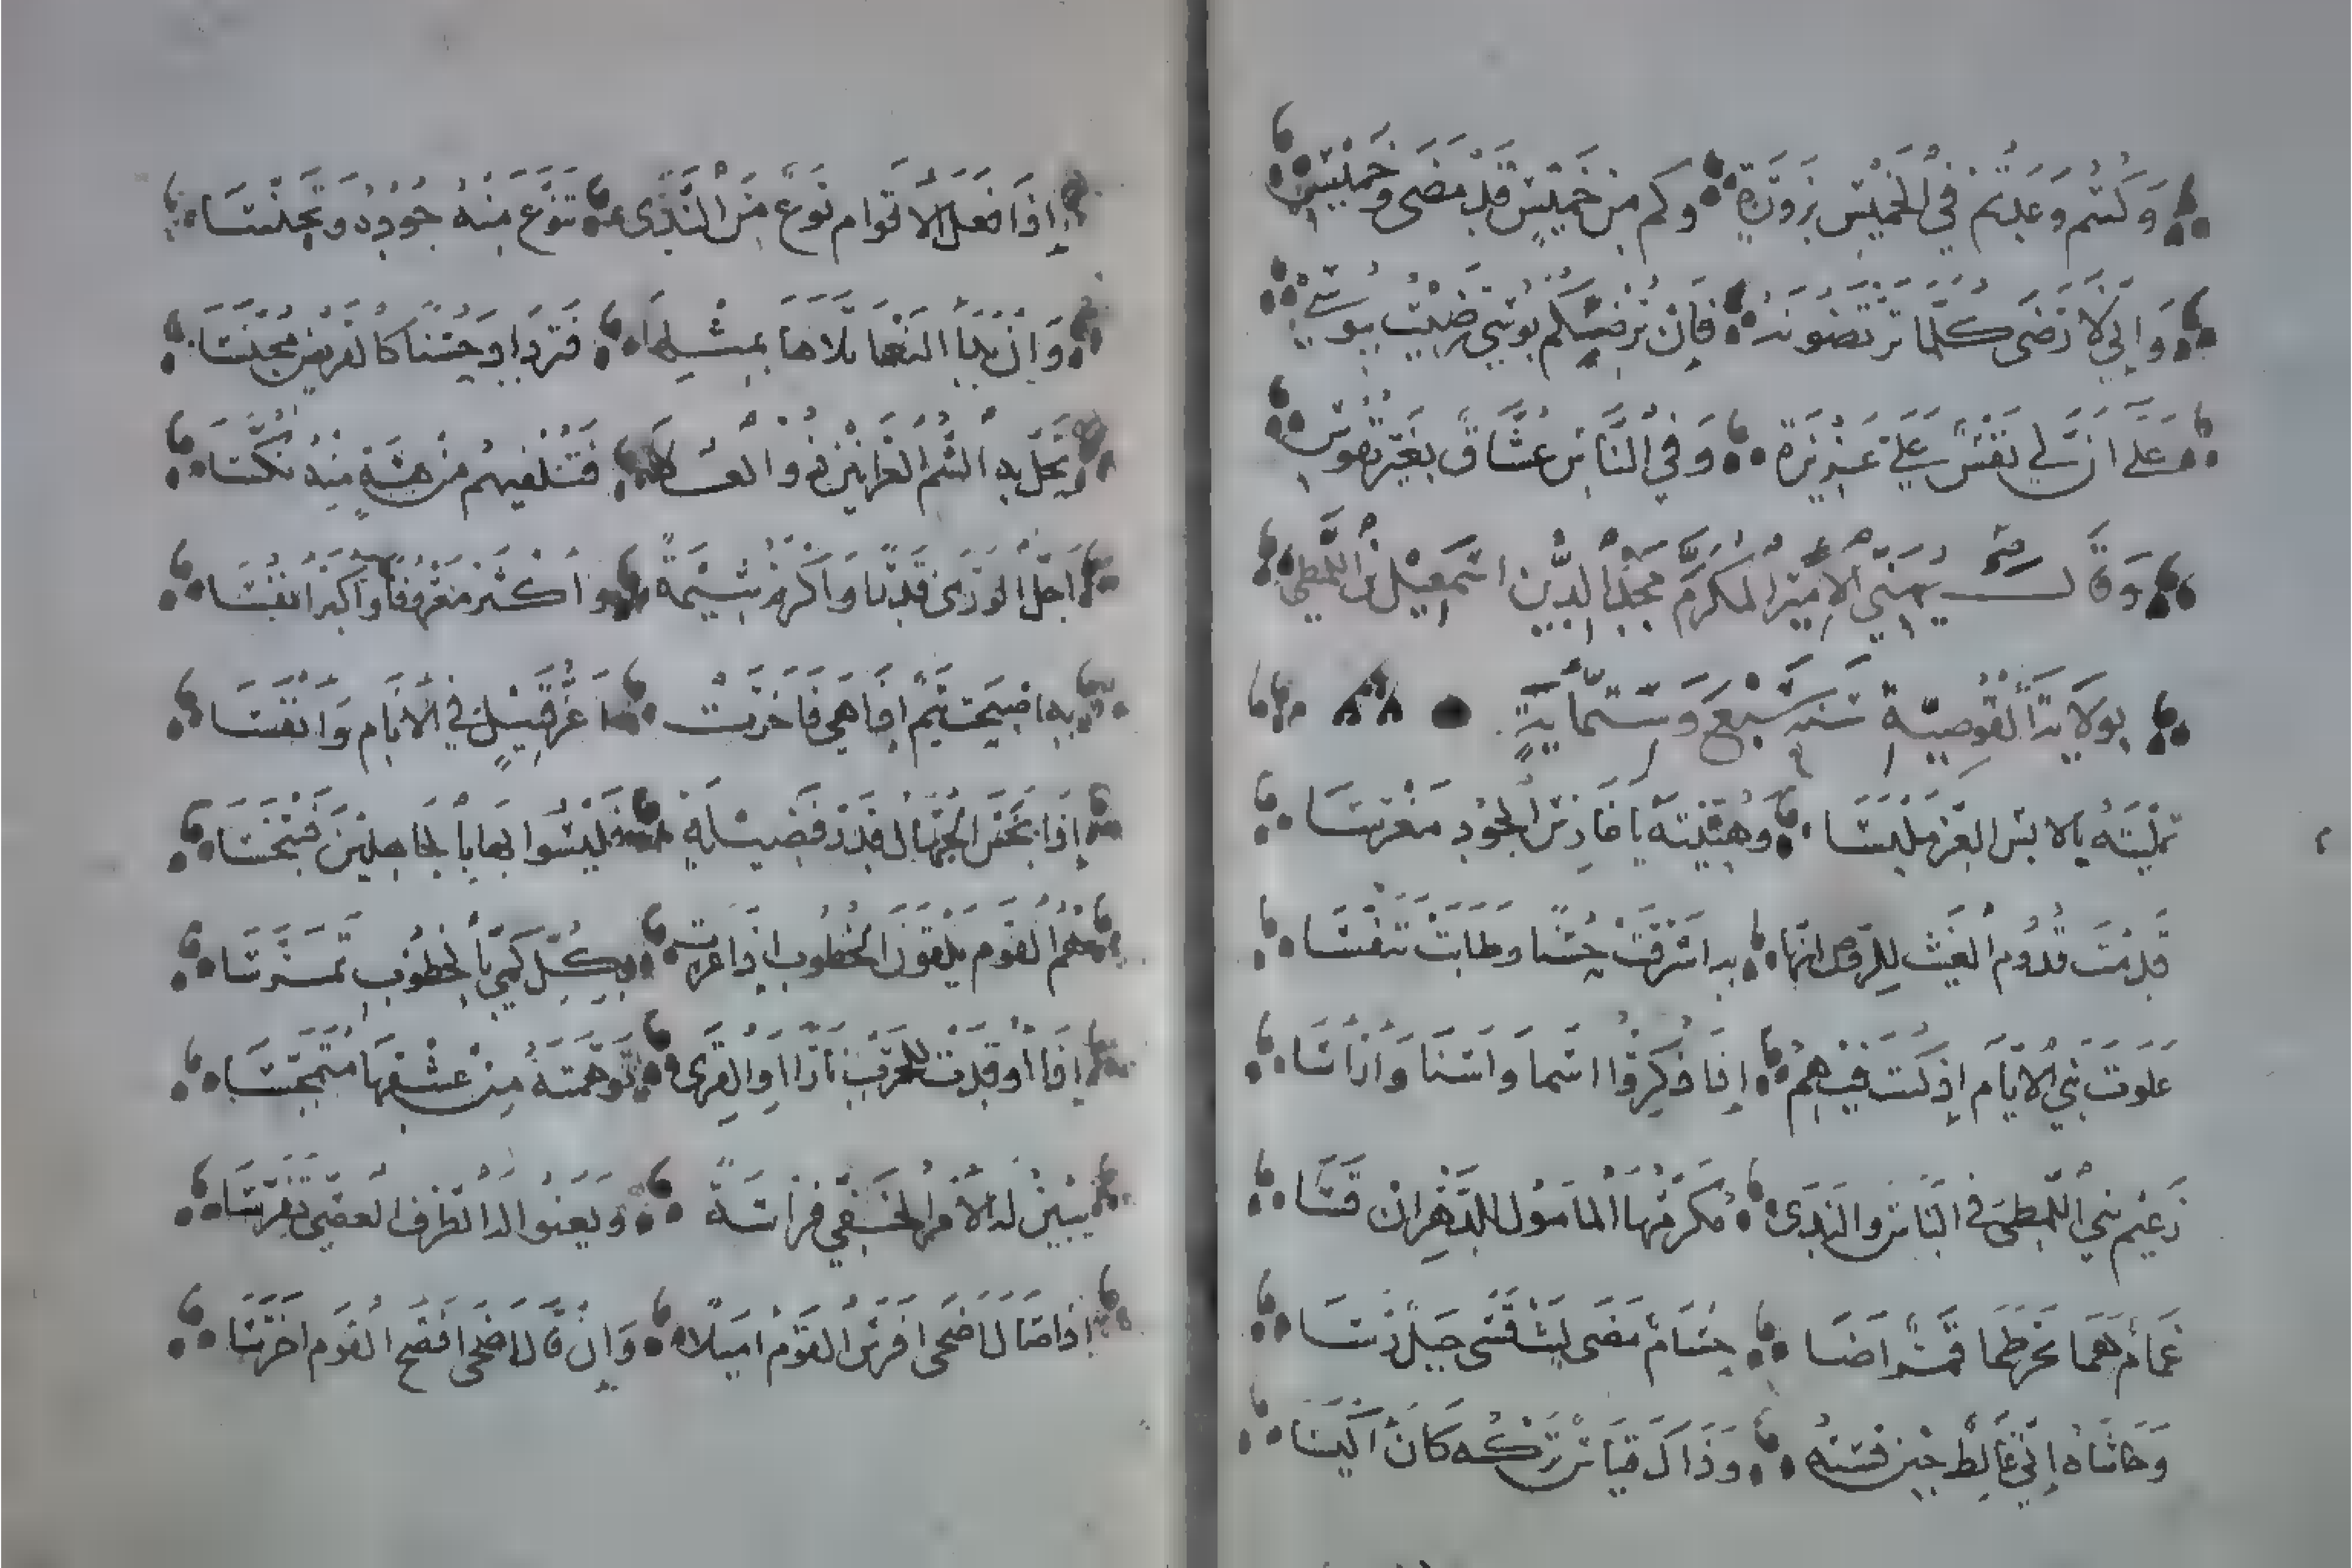 وَكُنتُم وَعَدتُم في الخَميسِ بِزَورَةٍ وكم من خَميسٍ قد مَضى وخَميسِ
وَاِنّي لَأَرضى كلَّما تَرتَضونَهُ فَإِن يُرضِكُم بُوسي رَضِيتُ بِبُوسي
عَلى أنَّ لي نَفسًا عَلَيَّ عَزيزَةً وَفي النَّاسِ عُشّاقٌ بِغَيرِ نُفوسِ
وَقَالَ يُهَنّي الأميرَ المُكرَّم مَجدَ الدِّين اسمعيل بن اللمطي
بولايَة القوصِيّة سَنَه سَبْع وَسِتّمايةٍ
تملّيتَهُ يا لابسَ العِزِّ مَلبَسَا وهُنّيتَهُ يا غارِسَ الجُودِ مَغرِسَا
قَدِمتَ قُدُومَ الغَيثِ للرَّوضِ إنّها بهِ اشرَقَت حُسنًا وطابَت تَنَفُّسَا
عَلَوتَ بَني الأيّامِ إذ كنتَ فيهمُ إذا ذُكِروا اسمًا وأسنَا وَأرأسَا
زَعيمَ بني اللَّمطيِّ في البَأسِ والنَّدى مُكرَّمُهَا المَأمولُ للدَّهرِ إن قَسَا
غَمامٌ هَمَا بَحرٌ طَمَا قَمَرٌ أضَا حُسَامٌ مَضى لَيثٌ قَسَى جَبَلٌ رَسَا
وَحاشاهُ إنّي غالِطٌ حينَ قِستُهُ وَذاكَ قِياسٌ تَركُه كانَ أكيَسَا
إذا فَعلَ الأقوام نَوعًا مِنَ النَّدى تَنَوَّعَ منهُ جُودُه وتَجنَّسَا
وَإن بَدأ النَّعما تَلاها بِمِثلِها فَتَزدادُ حُسنًا كالقريضِ مُجنَّسَا
يَحُلُّ به الشُّمُّ العَرانينُ ذو العلا فَتَلفيهمُ من هَيبَةٍ منهُ نُكَّسَا
أجَلُّ الوَرى قَدرًا وَأكرمُ شيمَةً وأكثَرُ مَعروفًا وأكبَرُ أنفُسَا
به أصبَحَت تيمٌ إذا هي فاخَرَت أعَزُّ قَبيلٍ في الأنامِ وَأنفَسَا
إذا بَخَسَ الجُهّالُ قَدرَ فَضيلَةٍ فَليسُوا بها بالجاهلينَ فَتُبخَسَا
هُمُ القَوم يَلقَونَ الخُطوبَ إذا عَرَت بكُلِّ كَميٍّ بالخُطوبِ تَمرَّسَا
إذا أوقَدَت للحَربِ نارًا أو القِرى تَوَهَّمتَهُ مِن عِشقِها مُتمَجِّسَا
يَبينُ له الأمرُ الخَفيُّ فِراسَةً وَيَعنوا له الطَّرفُ العَصيُّ تَفَرُّسَا
إذا صَالَ أضحى أفرَسُ القَومِ أميَلًا وَإن قَالَ أضحى أفصَحُ القَومِ أخرَسَا